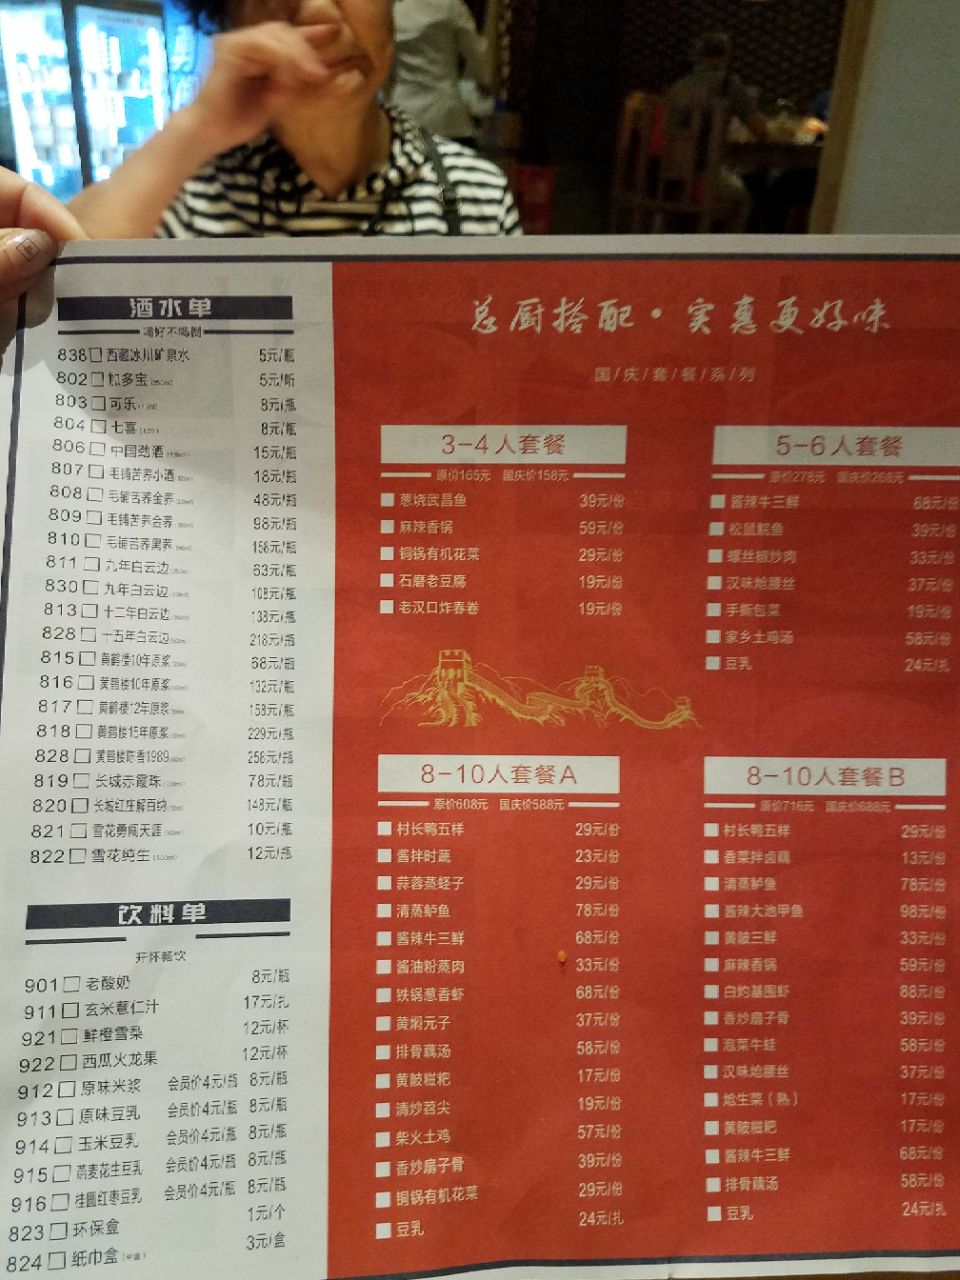 酒水单
喝好不喝倒
838 西藏冰川矿泉水 5元/瓶
802 加多宝 5元/听
803 可乐 8元/瓶
804 七喜 8元/瓶
806 中国劲酒 15元/瓶
807 毛铺苦荞小酒 18元/瓶
808 毛铺苦荞金荞 48元/瓶
809 毛铺苦荞金荞 98元/瓶
810 毛铺苦荞黑荞 156元/瓶
811 九年白云边 63元/瓶
830 九年白云边 108元/瓶
813 十二年白云边 138元/瓶
828 十五年白云边 218元/瓶
815 黄鹤楼10年原浆 68元/瓶
816 黄鹤楼10年原浆 132元/瓶
817 黄鹤楼12年原浆 158元/瓶
818 黄鹤楼15年原浆 229元/瓶
828 黄鹤楼陈香1989 258元/瓶
819 长城赤霞珠 78元/瓶
820 长城红庄解百纳 148元/瓶
821 雪花勇闯天涯 10元/瓶
822 雪花纯生 (500ml) 12元/瓶
饮料单
开怀畅饮
901 老酸奶 8元/瓶
911 玄米薏仁汁 17元/扎
921 鲜橙雪梨 12元/杯
922 西瓜火龙果 12元/杯
912 原味米浆 会员价4元/瓶 8元/瓶
913 原味豆乳 会员价4元/瓶 8元/瓶
914 玉米豆乳 会员价4元/瓶 8元/瓶
915 燕麦花生豆乳 会员价4元/瓶 8元/瓶
916 桂圆红枣豆乳 会员价4元/瓶 8元/瓶
823 环保盒 1元/个
824 纸巾盒 3元/盒
总厨搭配·实惠更好味
国/庆/套/餐/系/列
3-4人套餐
原价165元 国庆价158元
葱烧武昌鱼 39元/份
麻辣香锅 59元/份
铜锅有机花菜 29元/份
石磨老豆腐 19元/份
老汉口炸春卷 19元/份
5-6人套餐
原价278元 国庆价268元
酱辣牛三鲜 68元/份
松鼠鮰鱼 39元/份
螺丝椒炒肉 33元/份
汉味炝腰丝 37元/份
手撕包菜 19元/份
家乡土鸡汤 58元/份
豆乳 24元/扎
8-10人套餐A
原价608元 国庆价588元
村长鸭五样 29元/份
酱拌时蔬 23元/份
蒜蓉蒸蛏子 29元/份
清蒸鲈鱼 78元/份
酱辣牛三鲜 68元/份
酱油粉蒸肉 33元/份
铁锅葱香虾 68元/份
黄焖元子 37元/份
排骨藕汤 58元/份
黄陂糍粑 17元/份
清炒苕尖 19元/份
柴火土鸡 57元/份
香炒扇子骨 39元/份
铜锅有机花菜 29元/份
豆乳 24元/扎
8-10人套餐B
原价716元 国庆价688元
村长鸭五样 29元/份
香菜拌卤藕 13元/份
清蒸鲈鱼 78元/份
酱辣大池甲鱼 98元/份
黄陂三鲜 33元/份
麻辣香锅 59元/份
白灼基围虾 88元/份
香炒扇子骨 39元/份
泡菜牛蛙 58元/份
汉味炝腰丝 37元/份
炝生菜(熟) 17元/份
黄陂糍粑 17元/份
酱辣牛三鲜 68元/份
排骨藕汤 58元/份
豆乳 24元/扎